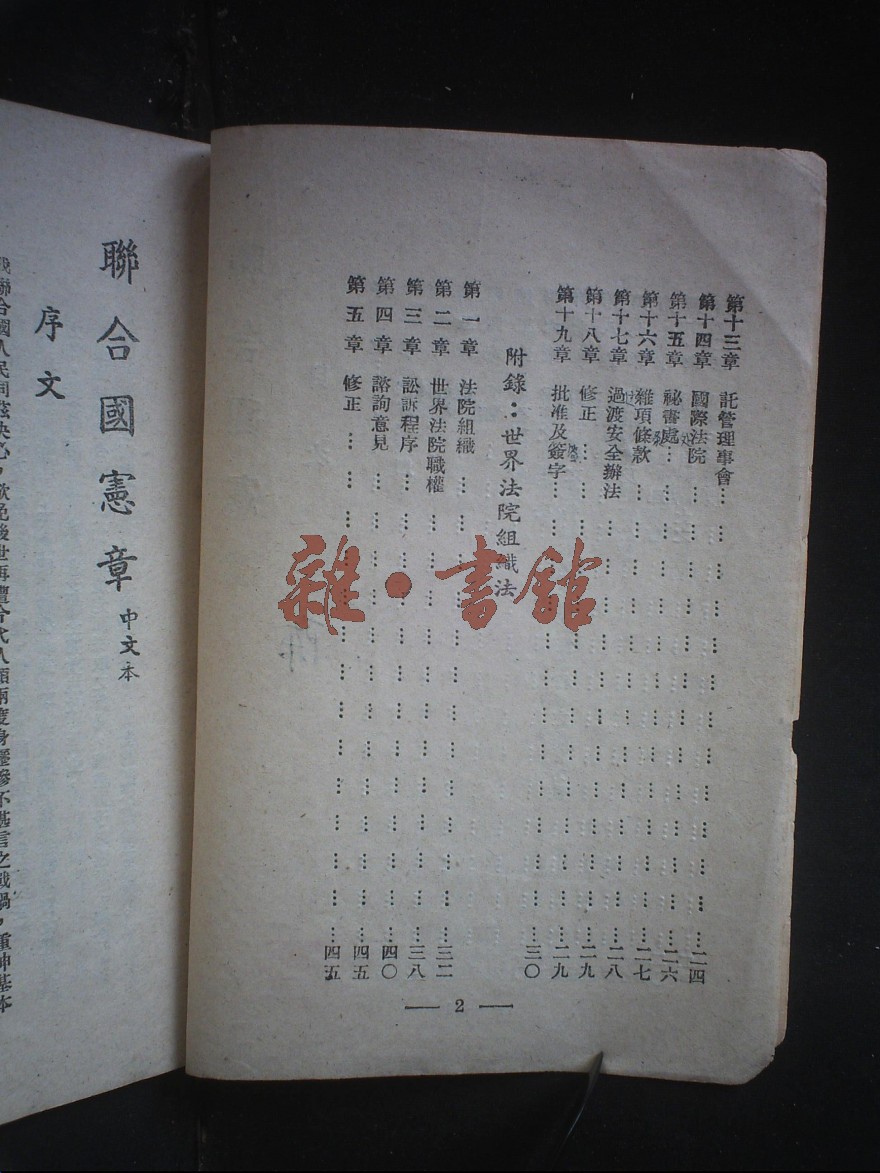 第十三章 託管理事會………二四
第十四章 國際法院………二六
第十五章 祕書處………二七
第十六章 雜項條款………二八
第十七章 過渡安全辦法………二九
第十八章 修正………二九
第十九章 批准及簽字………三〇
附錄：世界法院組織法
第一章 法院組織………三二
第二章 世界法院職權………三八
第三章 訟訴程序………四〇
第四章 諮詢意見………四五
第五章 修正………四五
— 2 —
聯合國憲章 中文本
序文
我聯合國人民同茲決心，欲免後世再遭今代人類兩度身歷慘不堪言之戰禍，重申基本
雜·書館